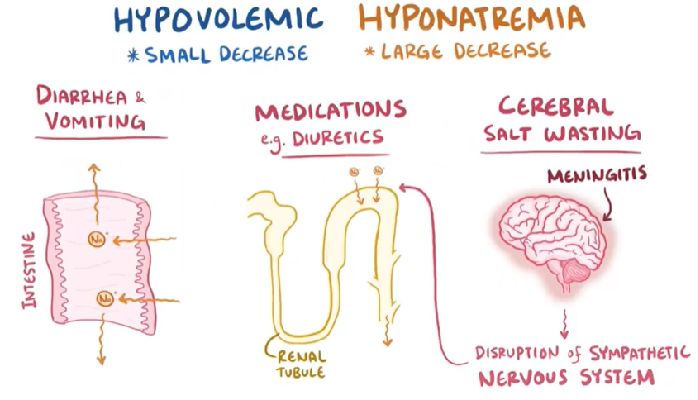 HYPOVOLEMIC HYPONATREMIA
* SMALL DECREASE * LARGE DECREASE
DIARRHEA &
VOMITING
INTESTINE
Na+
Na+
MEDICATIONS
e.g. DIURETICS
RENAL
TUBULE
CEREBRAL
SALT WASTING
MENINGITIS
DISRUPTION of SYMPATHETIC
NERVOUS SYSTEM